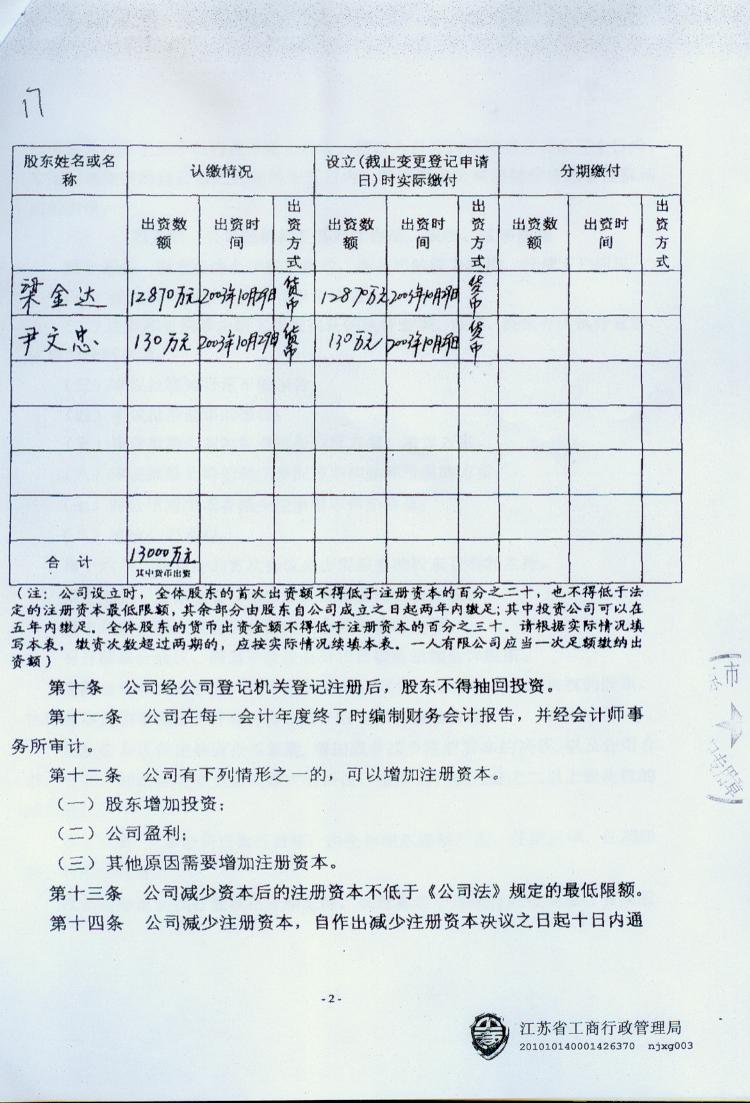 17
股东姓名或名称 认缴情况 设立(截止变更登记申请日)时实际缴付 分期缴付
出资数额 出资时间 出资方式 出资数额 出资时间 出资方式 出资数额 出资时间 出资方式
梁金达 12870万元 2003年10月29日 货币 12870万元 2003年10月29日 货币
尹文忠 130万元 2003年10月29日 货币 130万元 2003年10月29日 货币
合 计 13000万元
其中货币出资
(注:公司设立时,全体股东的首次出资额不得低于注册资本的百分之二十,也不得低于法
定的注册资本最低限额,其余部分由股东自公司成立之日起两年内缴足;其中投资公司可以在
五年内缴足。全体股东的货币出资金额不得低于注册资本的百分之三十。请根据实际情况填
写本表,缴资次数超过两期的,应按实际情况续填本表。一人有限公司应当一次足额缴纳出
资额)
第十条 公司经公司登记机关登记注册后,股东不得抽回投资。
第十一条 公司在每一会计年度终了时编制财务会计报告,并经会计师事
务所审计。
第十二条 公司有下列情形之一的,可以增加注册资本。
(一)股东增加投资;
(二)公司盈利;
(三)其他原因需要增加注册资本。
第十三条 公司减少资本后的注册资本不低于《公司法》规定的最低限额。
第十四条 公司减少注册资本,自作出减少注册资本决议之日起十日内通
- 2 -
江苏省工商行政管理局
201010140001426370 njxg003
市